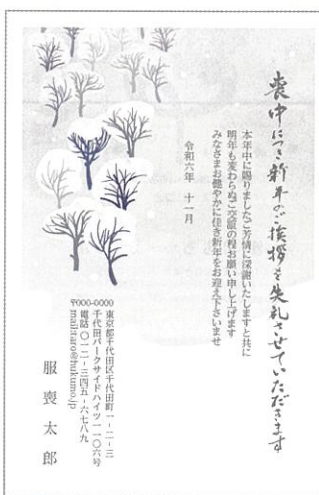 喪中につき新年のご挨拶を失礼させていただきます
本年中に賜りましたご芳情に深謝いたしますと共に
明年も変わらぬご交誼の程お願い申し上げます
みなさまお健やかに佳き新年をお迎え下さいませ
令和六年 十一月
〒000-0000
東京都千代田区千代田町一-二-三
千代田パークサイドハイツ一一〇六号
電話〇一二-三四五-六七八九
mail:taro@fukumo.jp
服喪太郎